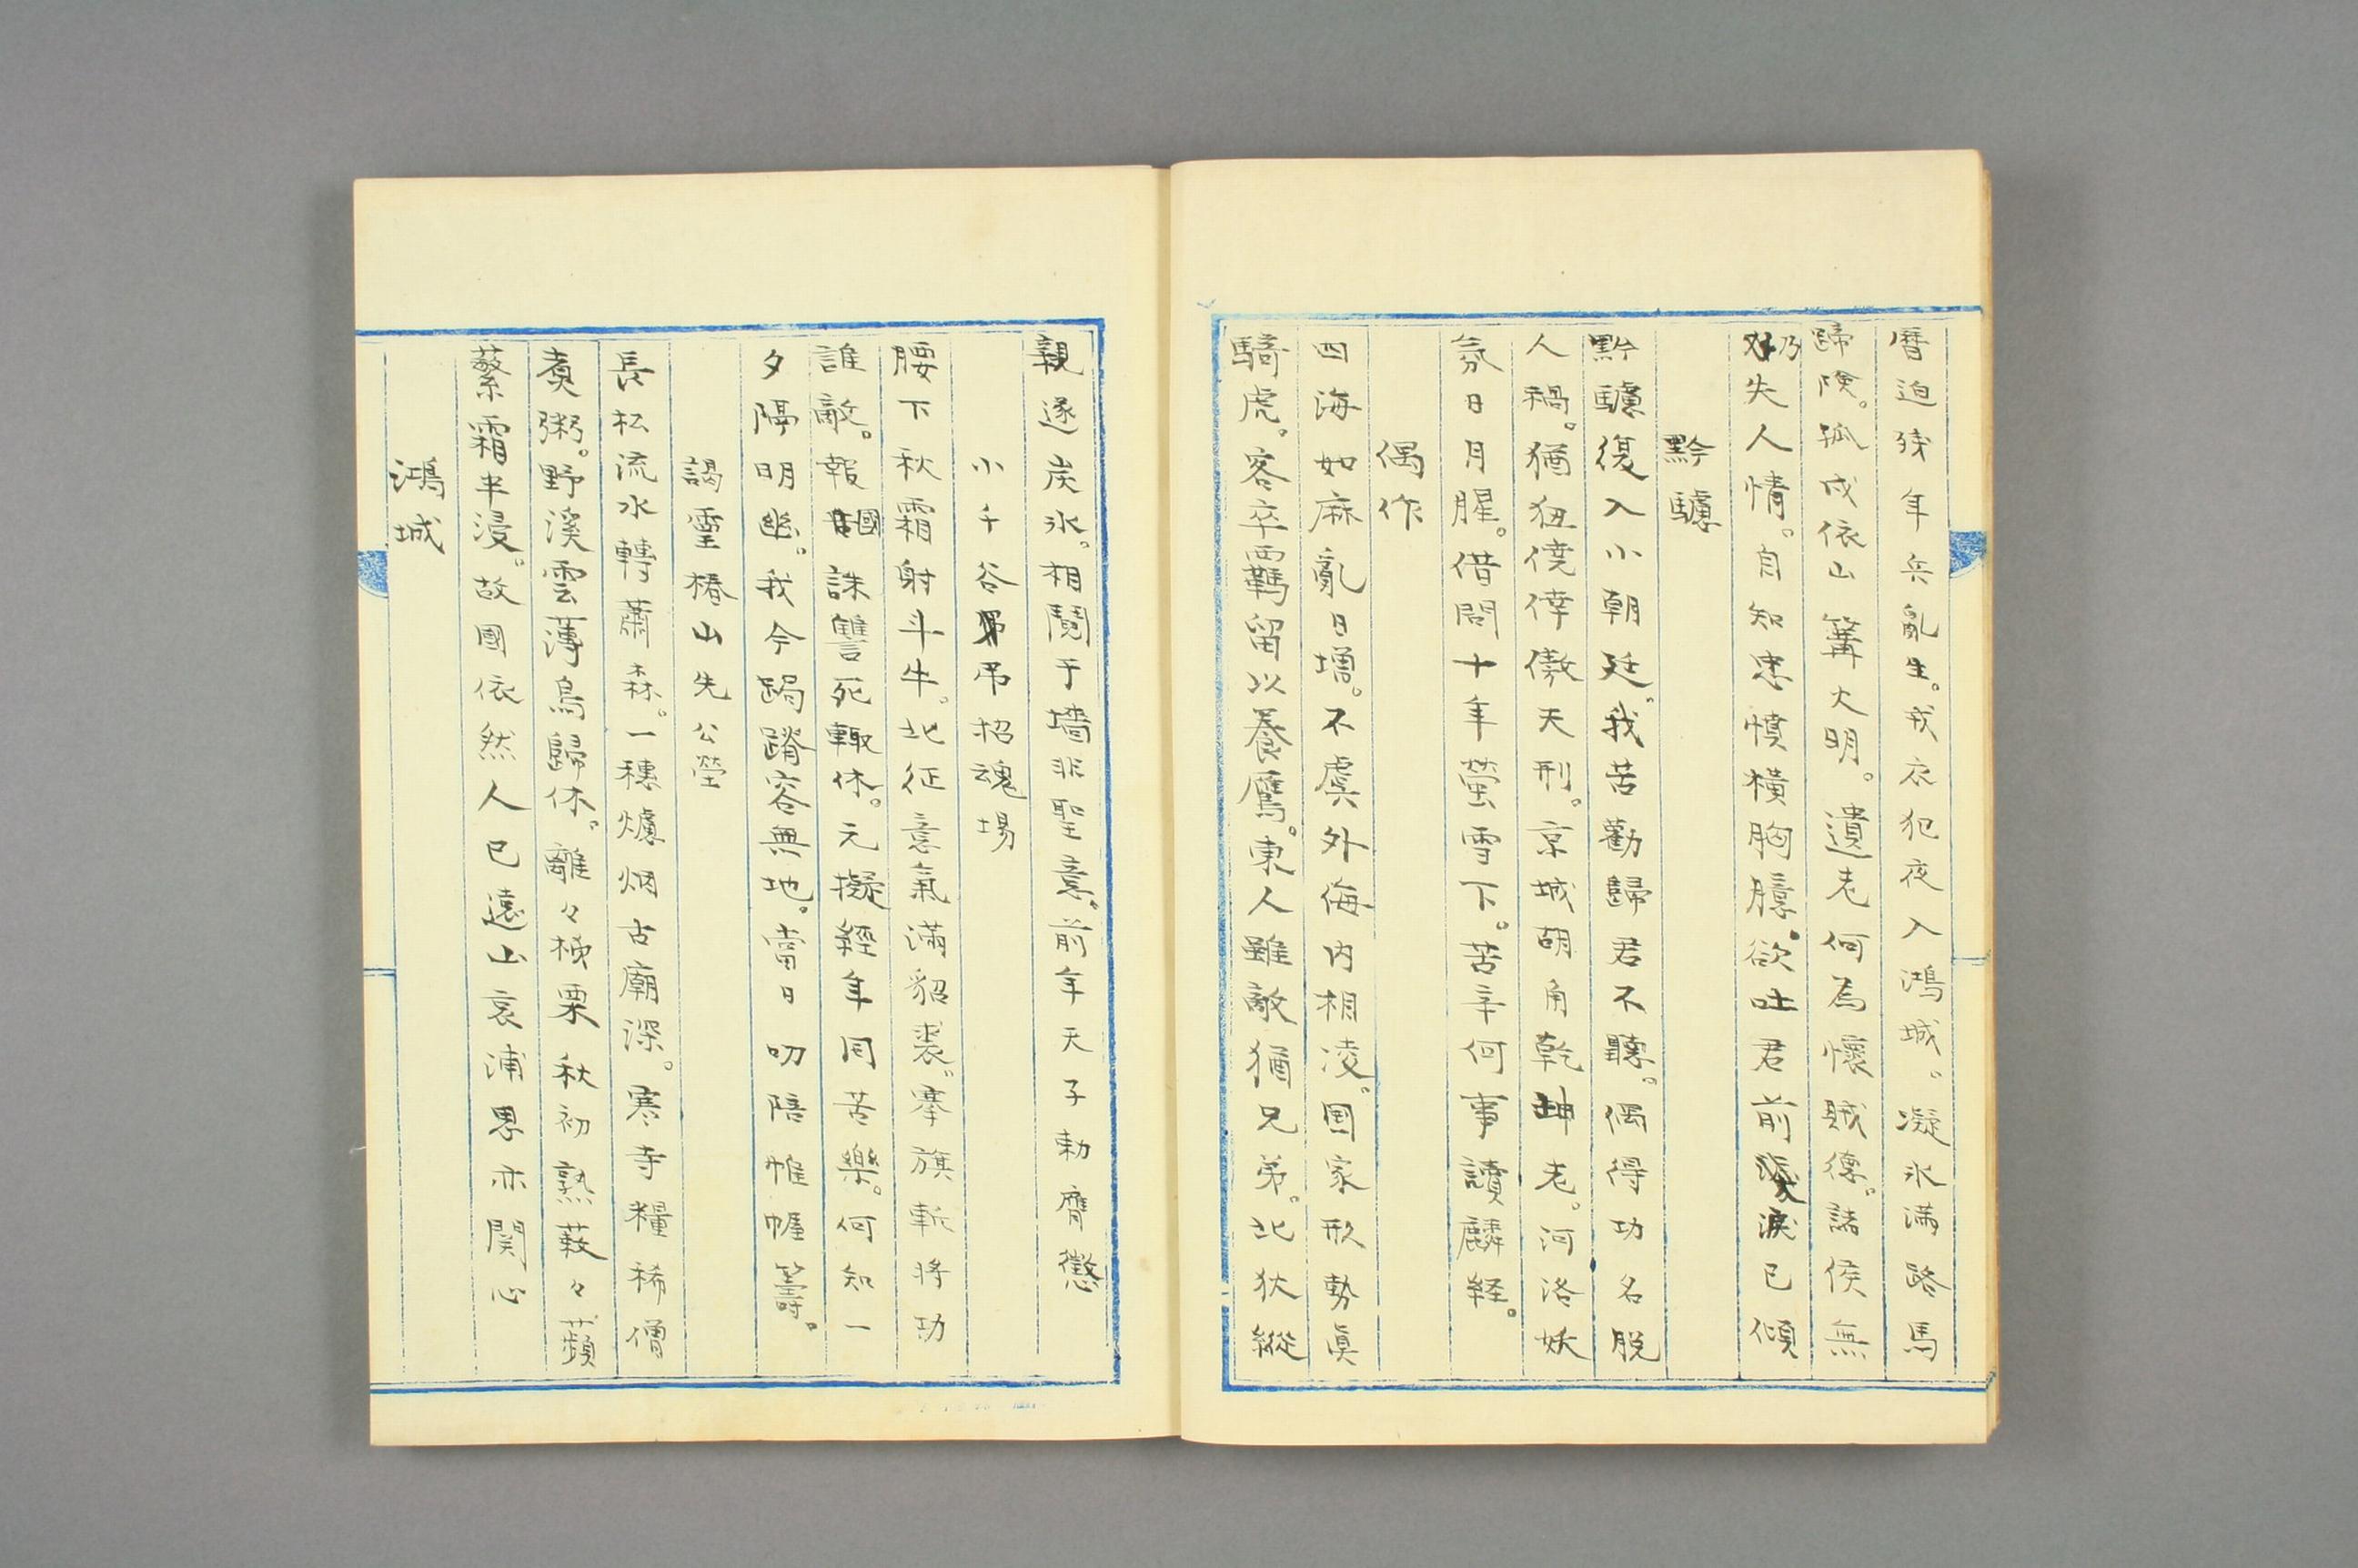 暦迫残年兵亂生。戎衣犯夜入鴻城。凝氷満路馬
蹄険。孤戍依山篝火明。遺老何為懐賊徳。諸侯無
乃失人情。自知忠憤横胸臆。欲吐君前涙已傾
黔驢
黔驢復入小朝廷。我苦勸歸君不聽。偶得功名脱
人禍。猶狃僥倖傲天刑。京城胡角乾坤老。河洛妖
氛日月腥。借問十年螢雪下。苦辛何事讀麟経。
偶作
四海如麻亂日増。不虞外侮内相凌。国家形勢眞
騎虎。客卒羈留以養鷹。東人雖敵猶兄弟。北狄縦
親遂炭氷。相鬩于墻非聖意。前年天子勅膺懲
小千谷吊招魂場
腰下秋霜射斗牛。北征意氣満貂裘。搴旗斬将功
誰敵。報國誅讐死輙休。元擬経年同苦樂。何知一
夕隔明幽。我今跼蹐容無地。當日叨陪帷幄籌。
謁靈椿山先公塋
長松流水轉蕭森。一穗爐烟古廟深。寒寺糧稀僧
煑粥。野溪雲薄鳥歸休。離々梂栗秋初熟蔌々蘋
蘩霜半浸。故國依然人已遠山哀浦思亦関心
鴻城